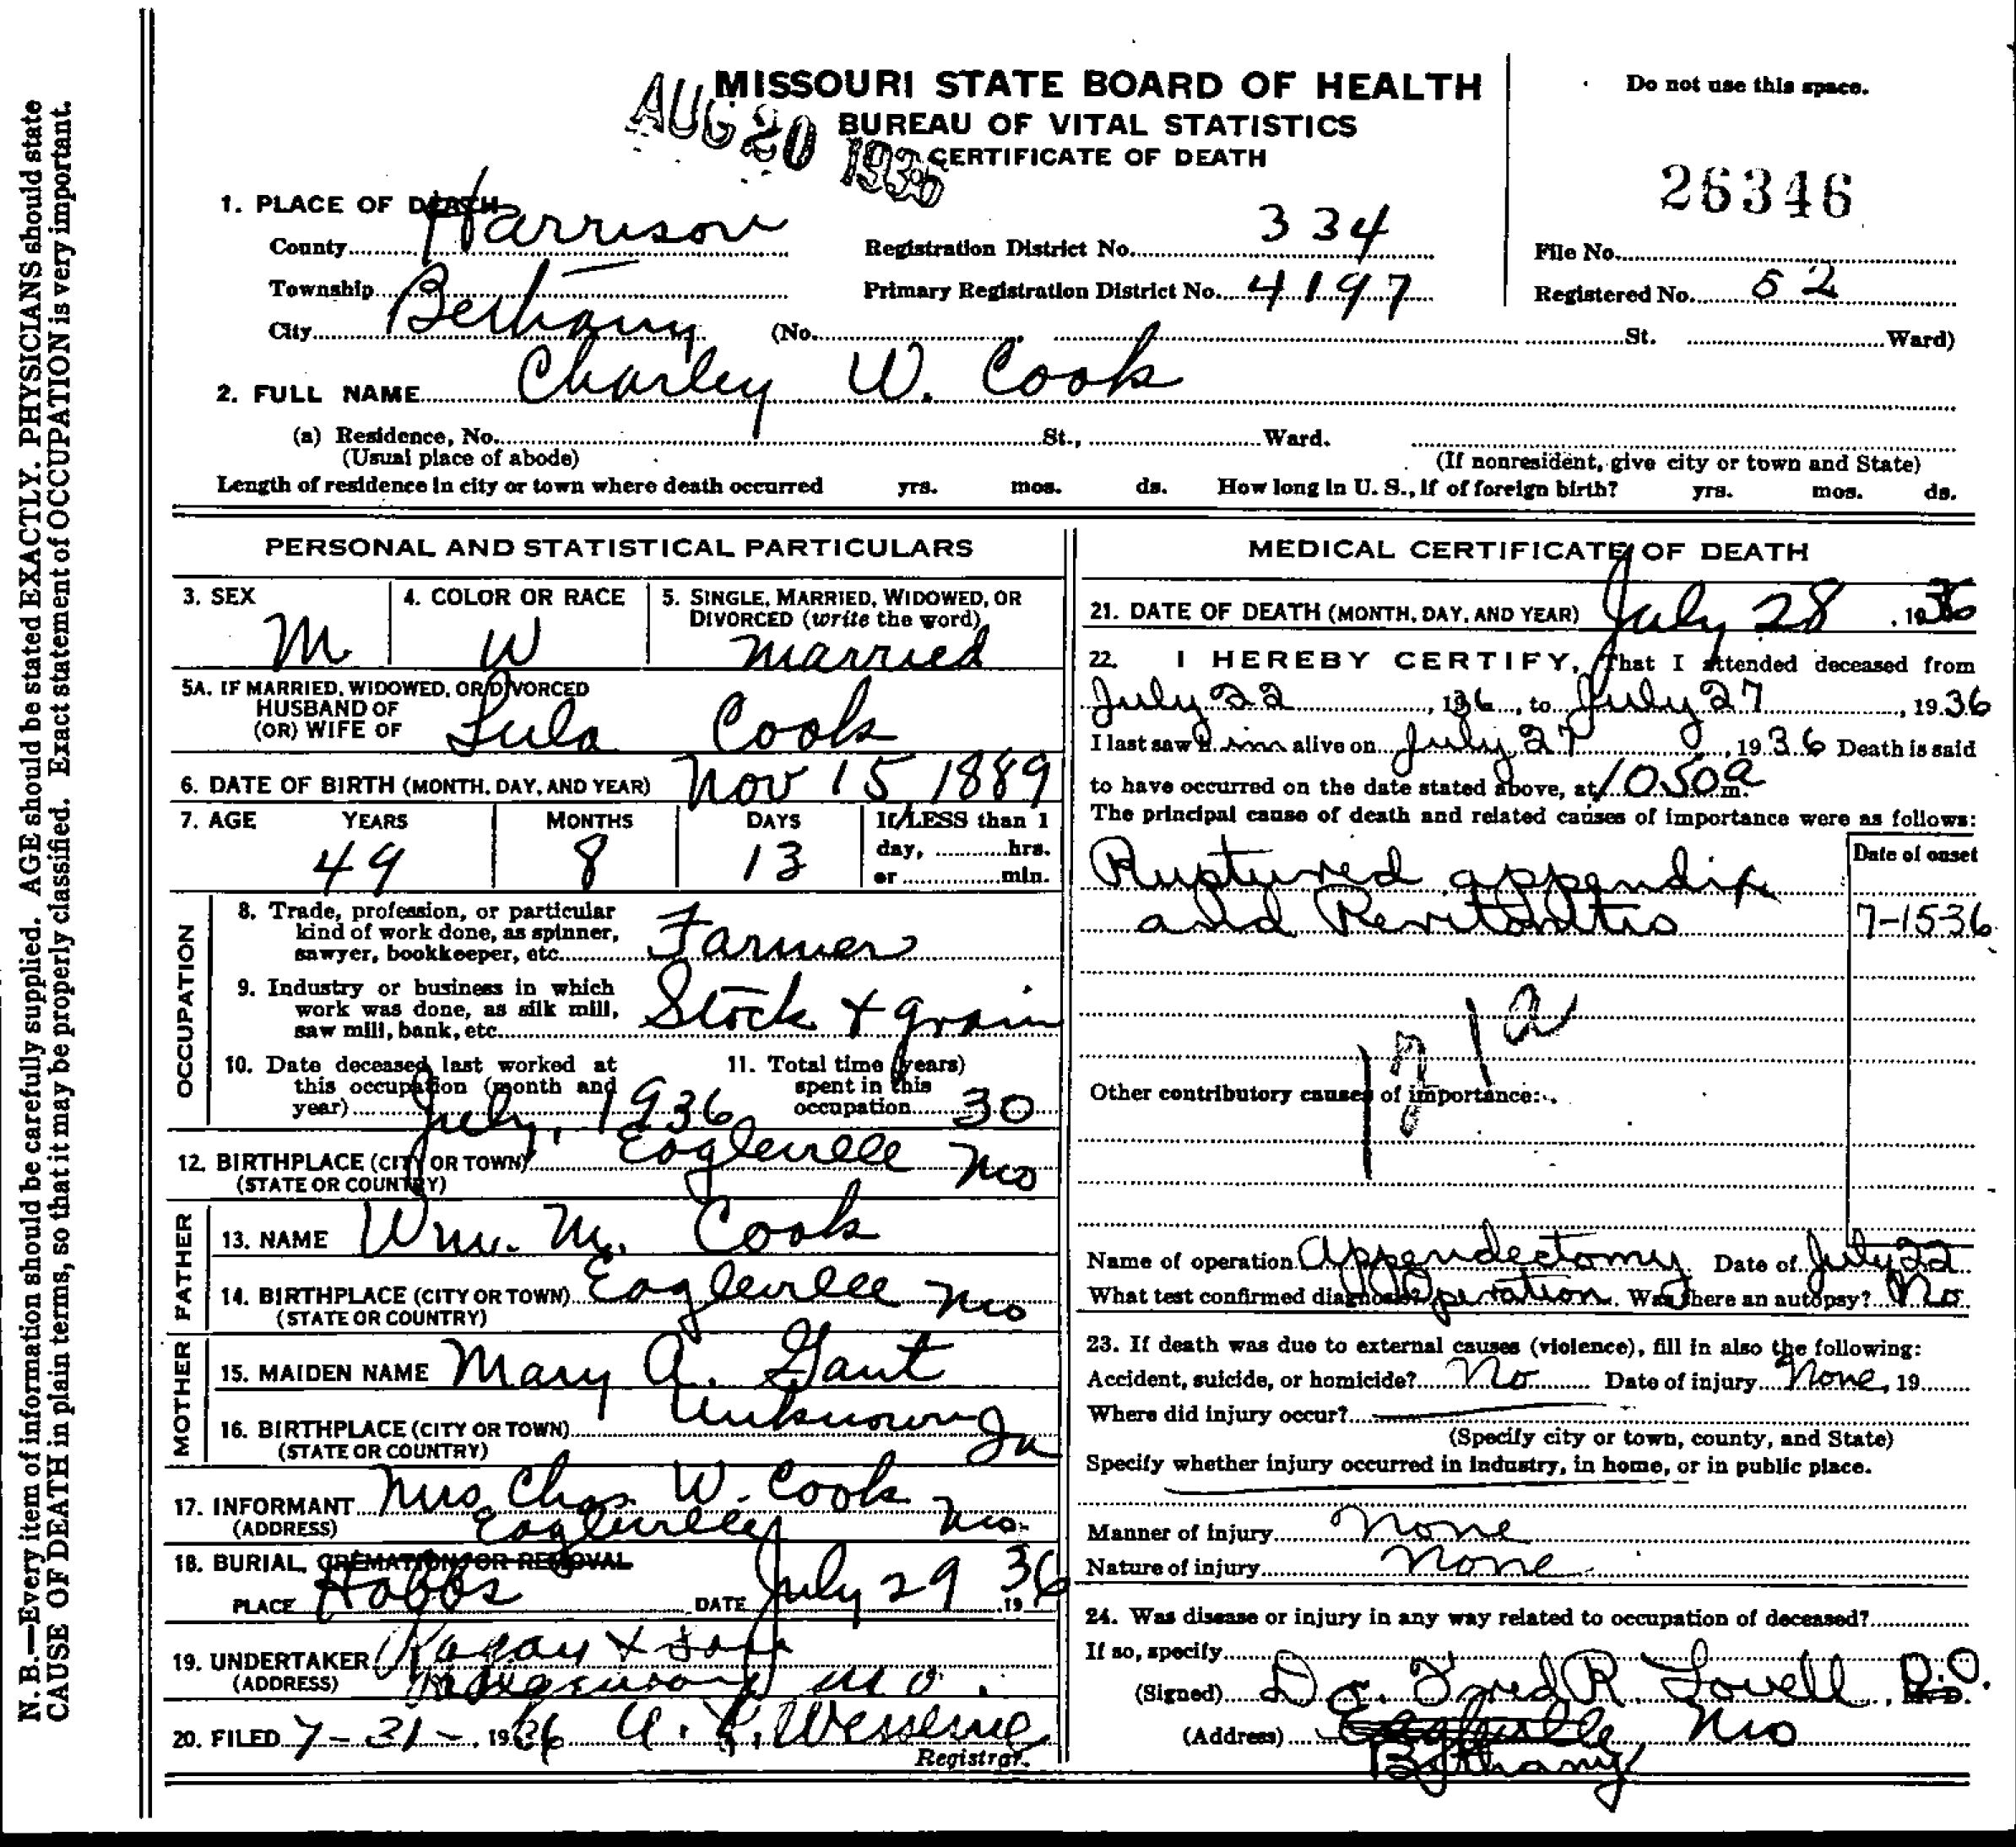 N. B.—Every item of information should be carefully supplied. AGE should be stated EXACTLY. PHYSICIANS should state
CAUSE OF DEATH in plain terms, so that it may be properly classified. Exact statement of OCCUPATION is very important.
MISSOURI STATE BOARD OF HEALTH
BUREAU OF VITAL STATISTICS
CERTIFICATE OF DEATH
AUG 20 1936
Do not use this space.
26346
1. PLACE OF DEATH
County Harrison
Registration District No. 334
File No.
Township
Primary Registration District No. 4197
Registered No. 52
City Bethany (No. St. Ward)
2. FULL NAME Charley W. Cook
(a) Residence, No. St., Ward.
(Usual place of abode) (If nonresident, give city or town and State)
Length of residence in city or town where death occurred yrs. mos. ds. How long in U. S., if of foreign birth? yrs. mos. ds.
PERSONAL AND STATISTICAL PARTICULARS
3. SEX M
4. COLOR OR RACE W
5. SINGLE, MARRIED, WIDOWED, OR
DIVORCED (write the word)
married
5A. IF MARRIED, WIDOWED, OR DIVORCED
HUSBAND OF
(OR) WIFE OF Lula Cook
6. DATE OF BIRTH (MONTH, DAY, AND YEAR) Nov 15 1889
7. AGE YEARS MONTHS DAYS If LESS than 1
49 8 13 day, hrs.
or min.
OCCUPATION
8. Trade, profession, or particular
kind of work done, as spinner,
sawyer, bookkeeper, etc. Farmer
9. Industry or business in which
work was done, as silk mill,
saw mill, bank, etc. Stock & grain
10. Date deceased last worked at
this occupation (month and
year) July, 1936
11. Total time (years)
spent in this
occupation 30
12. BIRTHPLACE (CITY OR TOWN) Eagleville Mo
(STATE OR COUNTRY)
FATHER
13. NAME Wm. M. Cook
14. BIRTHPLACE (CITY OR TOWN) Eagleville Mo
(STATE OR COUNTRY)
MOTHER
15. MAIDEN NAME Mary A. Gaut
16. BIRTHPLACE (CITY OR TOWN) Unknown Ia
(STATE OR COUNTRY)
17. INFORMANT Mrs Chas. W. Cook
(ADDRESS) Eagleville Mo.
18. BURIAL, CREMATION, OR REMOVAL
PLACE Hobbs DATE July 29 1936
19. UNDERTAKER & Son
(ADDRESS) Mo.
20. FILED 7-31-, 1936
Registrar.
MEDICAL CERTIFICATE OF DEATH
21. DATE OF DEATH (MONTH, DAY, AND YEAR) July 28, 1936
22. I HEREBY CERTIFY, That I attended deceased from
July 22, 1936, to July 27, 1936
I last saw him alive on July 27, 1936 Death is said
to have occurred on the date stated above, at 1050a m.
The principal cause of death and related causes of importance were as follows:
Date of onset
Ruptured appendix
and Peritonitis 7-15-36
121a
Other contributory causes of importance:
Name of operation Appendectomy Date of July 22
What test confirmed diagnosis? Operation. Was there an autopsy? No
23. If death was due to external causes (violence), fill in also the following:
Accident, suicide, or homicide? No Date of injury None, 19
Where did injury occur?
(Specify city or town, county, and State)
Specify whether injury occurred in industry, in home, or in public place.
Manner of injury None
Nature of injury None
24. Was disease or injury in any way related to occupation of deceased?
If so, specify
(Signed) Dr. Fred R. Lovell, D.O. M. D.
(Address) Eagleville Mo
Bethany